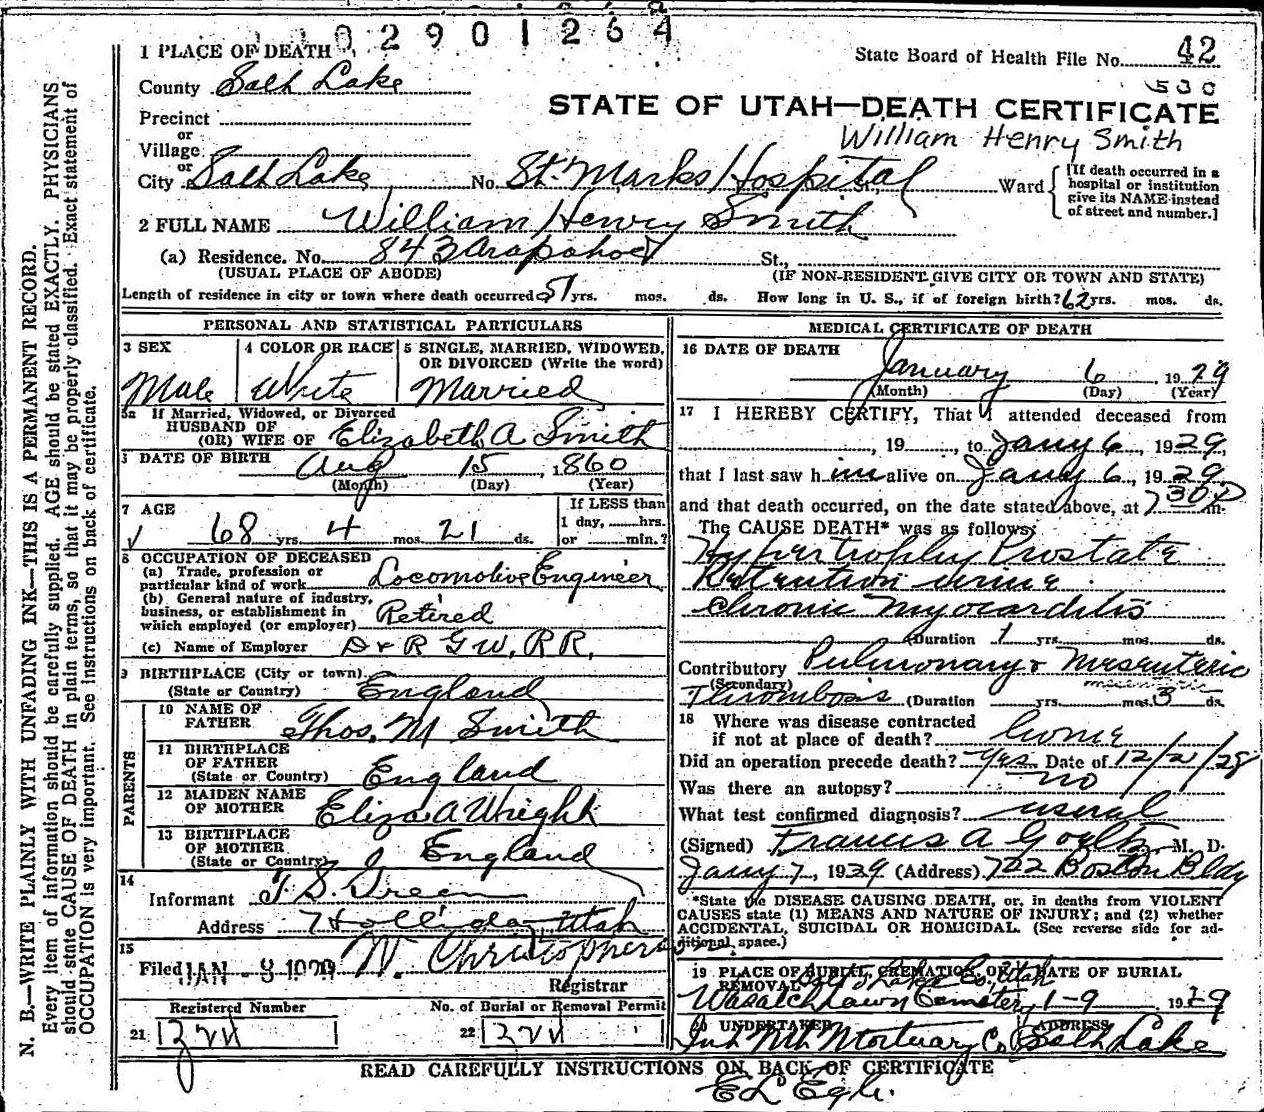 02901264
1 PLACE OF DEATH
State Board of Health File No. 42
530
County Salt Lake
STATE OF UTAH—DEATH CERTIFICATE
William Henry Smith
Precinct
or
Village
or
City Salt Lake No. St. Marks Hospital St., Ward
[If death occurred in a hospital or institution give its NAME instead of street and number.]
2 FULL NAME William Henry Smith
(a) Residence. No. 843 Arapahoe St.,
(USUAL PLACE OF ABODE) (IF NON-RESIDENT GIVE CITY OR TOWN AND STATE)
Length of residence in city or town where death occurred 51 yrs. mos. ds. How long in U. S., if of foreign birth? 62 yrs. mos. ds.
PERSONAL AND STATISTICAL PARTICULARS
3 SEX
Male
4 COLOR OR RACE
White
5 SINGLE, MARRIED, WIDOWED,
OR DIVORCED (Write the word)
Married
5a If Married, Widowed, or Divorced
HUSBAND OF
(OR) WIFE OF Elizabeth A Smith
DATE OF BIRTH Aug 15, 1860
(Month) (Day) (Year)
7 AGE
68 yrs. 4 mos. 21 ds.
If LESS than
1 day, hrs.
or min.?
8 OCCUPATION OF DECEASED
(a) Trade, profession or
particular kind of work Locomotive Engineer
(b) General nature of industry,
business, or establishment in
which employed (or employer) Retired
(c) Name of Employer D & R G W. R R.
9 BIRTHPLACE (City or town)
(State or Country) England
PARENTS
10 NAME OF
FATHER Thos. M Smith
11 BIRTHPLACE
OF FATHER
(State or Country) England
12 MAIDEN NAME
OF MOTHER Eliza A Wright
13 BIRTHPLACE
OF MOTHER
(State or Country) England
14
Informant T. S. Green
Address Holliday, Utah
15
Filed JAN - 8 1929 W. Christopherson.
Registrar
Registered Number
21
No. of Burial or Removal Permit
22
MEDICAL CERTIFICATE OF DEATH
16 DATE OF DEATH
January 6, 1929
(Month) (Day) (Year)
17 I HEREBY CERTIFY, That I attended deceased from
, 19 , to Jany 6, 1929,
that I last saw him alive on Jany 6, 1929,
and that death occurred, on the date stated above, at 730 P m.
The CAUSE DEATH* was as follows:
Hypertrophy Prostate
Retention urine
Chronic Myocarditis
(Duration 1 yrs. mos. ds.
Contributory Pulmonary & Mesenteric
(Secondary)
Thrombosis (Duration yrs. mos. 3 ds.
18 Where was disease contracted
if not at place of death? home
Did an operation precede death? Yes. Date of 12/21/28
Was there an autopsy? no
What test confirmed diagnosis? usual
(Signed) Francis A M. D.
Jany 7, 1929 (Address) 722 Boston Bldg
*State the DISEASE CAUSING DEATH, or, in deaths from VIOLENT
CAUSES state (1) MEANS AND NATURE OF INJURY; and (2) whether
ACCIDENTAL, SUICIDAL OR HOMICIDAL. (See reverse side for ad-
ditional space.)
19 PLACE OF BURIAL, CREMATION, OR REMOVAL DATE OF BURIAL
Salt Lake Co. Utah
Wasatch Lawn Cemetery 1-9, 1929
20 UNDERTAKER ADDRESS
Mortuary Co Salt Lake
READ CAREFULLY INSTRUCTIONS ON BACK OF CERTIFICATE
E L Egli.
N. B.—WRITE PLAINLY WITH UNFADING INK—THIS IS A PERMANENT RECORD.
Every item of information should be carefully supplied. AGE should be stated EXACTLY. PHYSICIANS
should state CAUSE OF DEATH in plain terms, so that it may be properly classified. Exact statement of
OCCUPATION is very important. See instructions on back of certificate.